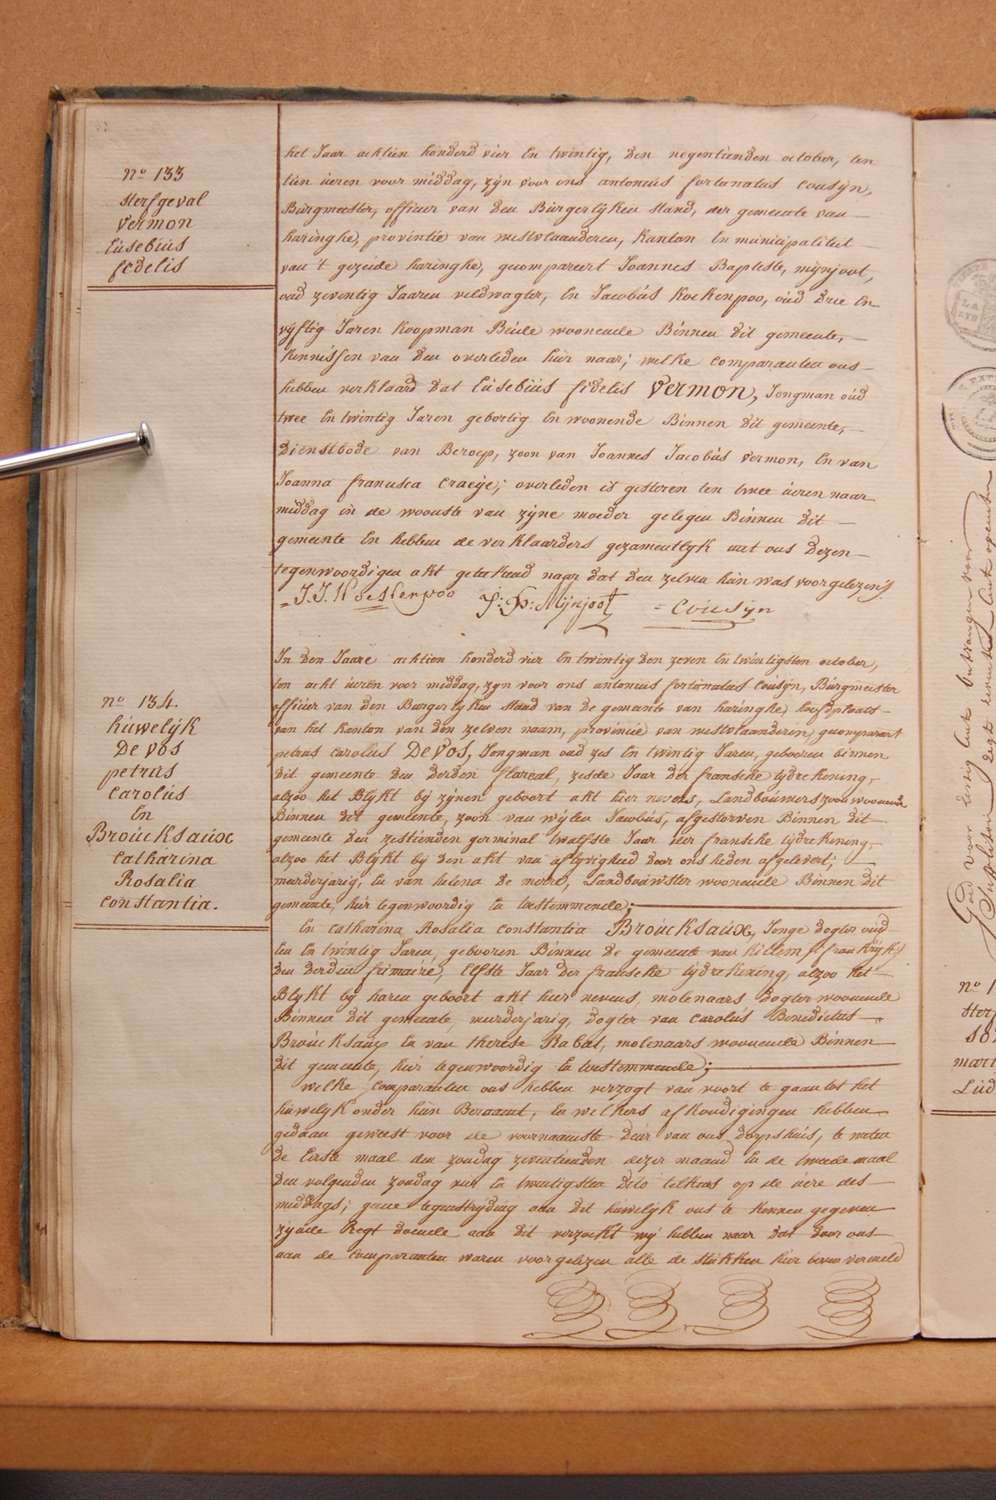 no 133
sterfgeval
vermon
Eúsebiús
fedelis
het Jaar achtien honderd vier En twintig, den negentienden october, ten
tien úeren voor middag, zÿn voor ons antoniús fortonatus cousÿn,
Búrgmeester, officier van den Búrgerlÿken stand, der gemeente van
haringhe, provintie van westvlaanderen, kanton En municipaliteit
van 't gezeide haringhe, gecompareert Joannes Baptiste, mÿnjoot,
oud zeventig Jaaren veldwagter, En Jacobús Koekenpoo, oúd drie En
vÿftig Jaren koopman Beide woonende Binnen dit gemeente, —
kennissen van den overleden hier naar; welke comparanten ons —
hebben verklaard dat Eúsebiús fidelis vermon, Jongman oúd
twee En twintig Jaren geboortig En woonende Binnen dit gemeente, —
dienstbode van Beroep, zoon van Joannes Jacobús vermon, En van
Joanna francisca craeÿe; overleden is gisteren ten twee úeren naar
middag in de woonste van zÿne moeder gelegen Binnen dit —
gemeente En hebben de verklaarders gezamentlÿk met ons dezen —
tegenwoordigen akt geteekend naar dat den zelven hún was voorgelezen;
J. J. Koekenpoo J: B: Mÿnjoot = Cousÿn
no 134.
húwelÿk
De vos
petrús
carolús
En
Broúcksaúx
catharina
Rosalia
constantia.
In den Jaare achtien honderd vier En twintig den zeven En twintigsten october,
ten acht úeren voor middag, zÿn voor ons antonius fortúnatus coúsÿn, Búrgmeister
officier van den Búrgerlÿken stand van de gemeente van haringhe, hoofdplaats —
van het kanton van den zelven naam, provincie van westvlaanderen, gecompareert
petrus carolus De vos, Jongman oud zes En twintig Jaren, geboren binnen
dit gemeente den derden floreal, zesde Jaar der fransche tÿdrekening, —
alzoo het Blÿkt bÿ zÿnen geboort akt hier nevens, Landboúwerszoon woonende
Binnen dit gemeente, zoon van wÿlen Jacobús, afgestorven Binnen dit
gemeente den zestienden germinal twalfste Jaar der fransche tÿdrekening, —
alzoo het Blÿkt bÿ den akt van aflÿvigheid door ons heden afgelevert; —
meerderjarig, En van helena De meere, Landboúwster woonende Binnen dit
gemeente, hier tegenwoordig En toestemmende;
En catharina Rosalia constantia Broúcksaúx, Jonge dogter oud
En twintig Jaren, gebooren Binnen de gemeente van killem (frankrÿk)
den derden frimaire, Elfste Jaar der fransche tÿdrekening, alzoo het —
Blÿkt bÿ haren geboort akt hier nevens, molenaars dogter woonende
Binnen dit gemeente, meerderjarig, dogter van carolús Benedictus —
Broúcksaúx En van therese Rabat, molenaars woonende Binnen
dit gemeente, hier tegenwoordig En toestemmende;
welke comparanten ons hebben verzogt van voort te gaan tot het
húwelÿk onder hún Beraamt, En welkers afkondigingen hebben
gedaan geweest voor de voornaamste deúr van ons dorpshúis, te weten
de Eerste maal den zondag zeventienden dezer maand En de tweede maal
den volgenden zondag vier En twintigsten dito telkens op de úere des —
middags; geene tegenstrÿding aan dit húwelÿk ons te kennen gegeven
zÿnde Regt doende aan dit verzoekt wÿ hebben naar dat door ons —
aan de comparanten waren voorgelezen alle de stúkken hier boven vermeld
no 1
Sterf
mart
Lúd